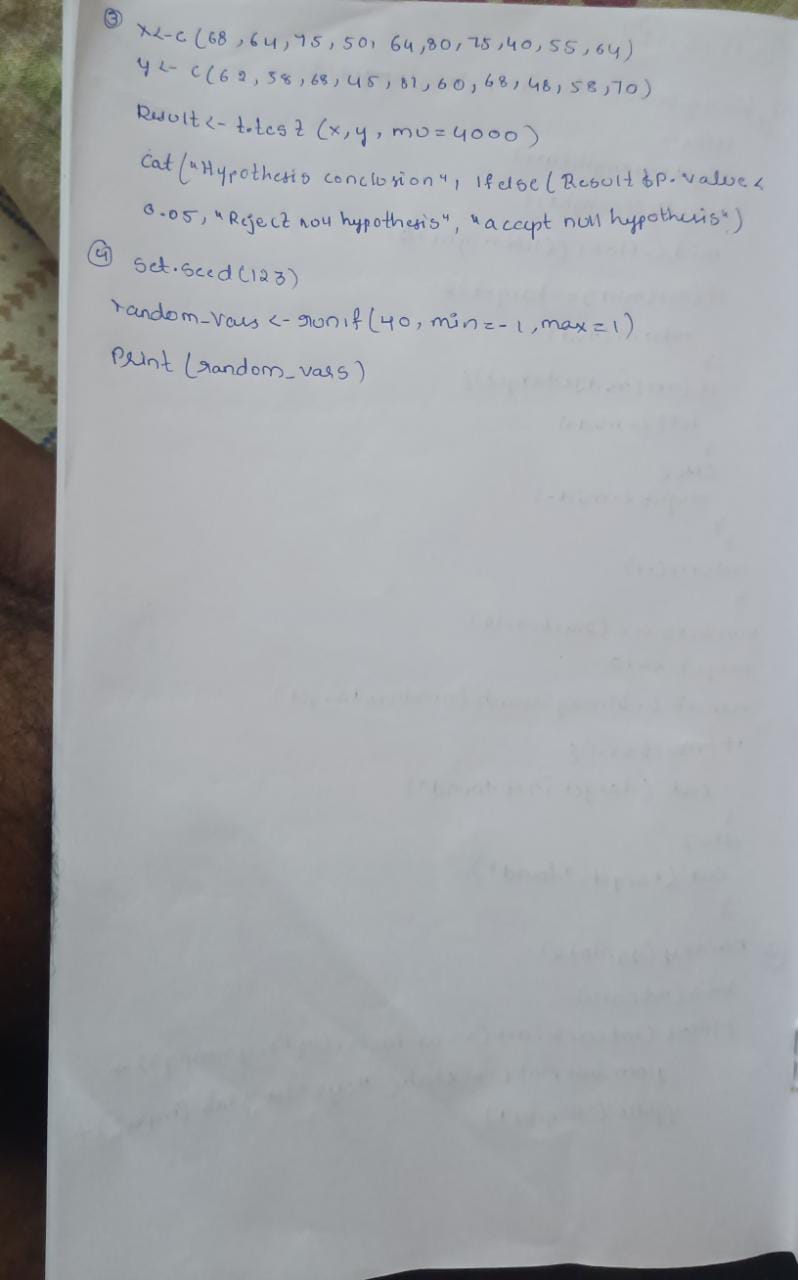 ③ x<-c(68,64,75,50,64,80,75,40,55,64)
y<-c(62,58,68,45,81,60,68,48,58,70)
Result<-t.test(x,y,mu=4000)
Cat("Hypothesis conclusion", Ifelse(Result$P.value<
0.05,"Reject null hypothesis","accept null hypothesis")
④ Set.seed(123)
random_vars<-runif(40,min=-1,max=1)
Print(random_vars)